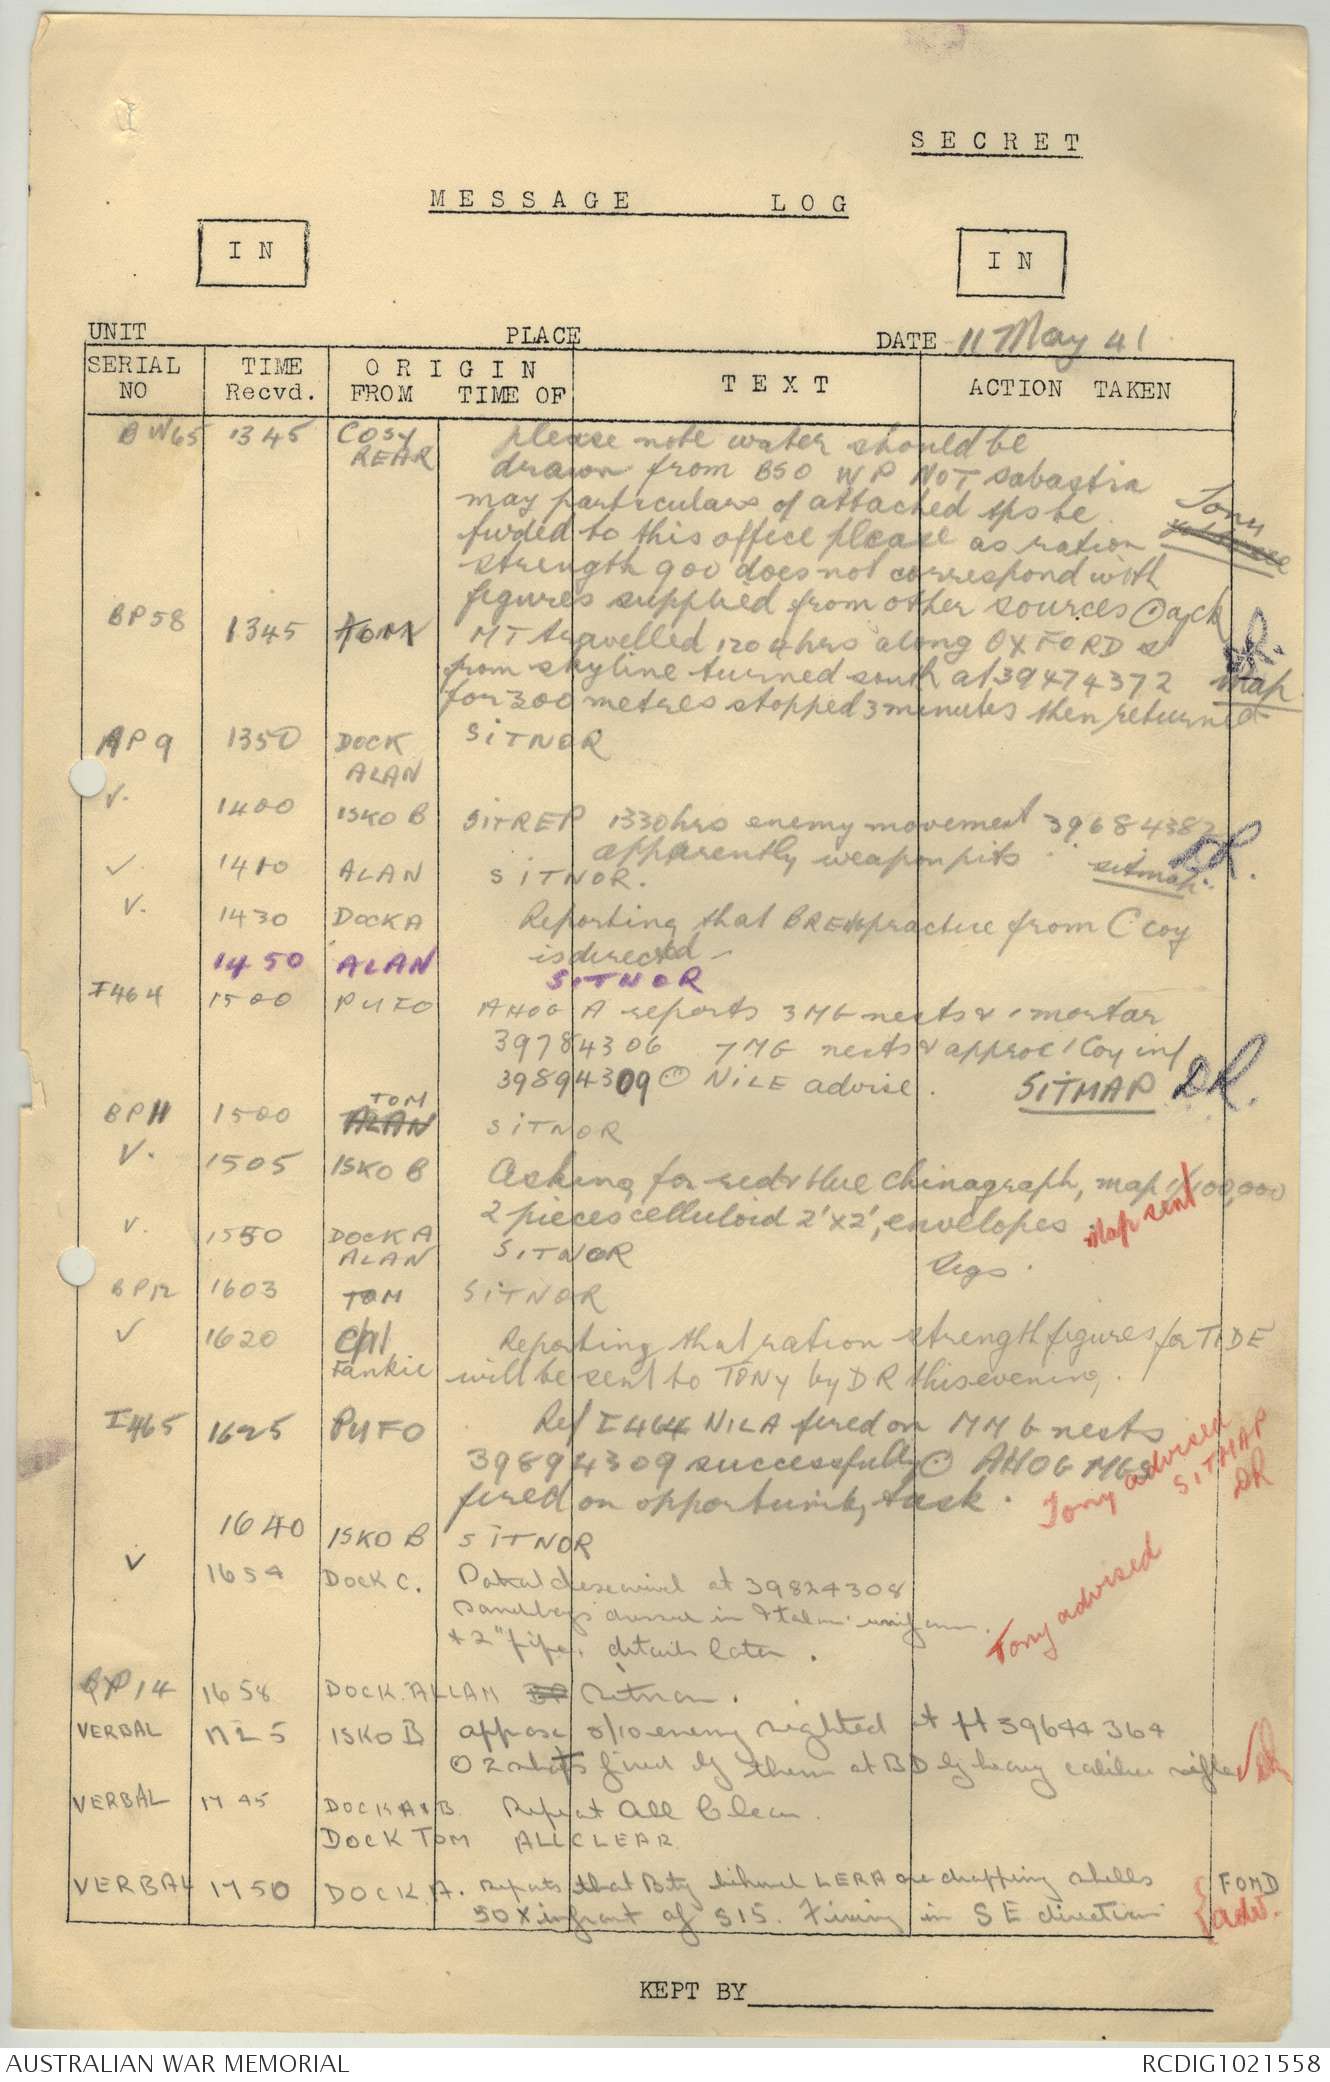 SECRET
MESSAGE LOG
IN
IN
UNIT PLACE DATE 11 May 41
SERIAL NO TIME Recvd. ORIGIN FROM TIME OF TEXT ACTION TAKEN
BW65 1345 COSY REAR please note water should be
drawn from BSO WP NOT Sabastia
may particulars of attached tps be
fwded to this office please as ration Tony
strength 900 does not correspond with
figures supplied from other sources ack
BP58 1345 TOM MT travelled 1204 hrs along OXFORD st
from skyline turned south at 39474372 map DR.
for 300 metres stopped 3 minutes then returned
AP9 1350 DOCK ALAN SITNOR
V. 1400 ISKO B SITREP 1330hrs enemy movement 39684382
apparently weapon pits sitmap. DR.
✓ 1410 ALAN SITNOR.
V. 1430 DOCK A Reporting that BREN practice from C coy
is directed
1450 ALAN SITNOR
I464 1500 PUFO AHOG A reports 3 MG nests & 1 mortar
39784306 7 MG nests & approx 1 Coy inf
39894309 ⊙ NILE advise. SITMAP DR.
BP11 1500 TOM ALAN SITNOR
V. 1505 ISKO B Asking for red & blue Chinagraph, map 1/100,000
2 pieces celluloid 2'x2', envelopes Map sent
V. 1550 DOCK A ALAN SITNOR
Sigs.
BP12 1603 TOM SITNOR
✓ 1620 Cpl Fankie Reporting that ration strength figures for TIDE
will be sent to TONY by DR this evening.
I465 1625 PUFO Ref I464 NILA fired on MMG nests
39894309 successfully ⊙ AHOG MGs
fired on opportunity task. Tony advised SITMAP DR
1640 ISKO B SITNOR
✓ 1654 DOCK C. Patrol at 39824308
Sandbags in uniform. Tony advised
+ 2" pipe. details later.
BP14 1658 DOCK. ALLAN Sitnor.
VERBAL 1725 ISKO B approx 8/10 enemy sighted at pt 39644364
⊙ 2 shots fired by them at BD by heavy calibre rifle ✓ DR
VERBAL 1745 DOCK A & B. Repeat All Clear.
DOCK TOM ALL CLEAR
VERBAL 1750 DOCK A. reports that Bty behind LERA are dropping shells
50X in front of S15. Firing in SE direction FOMD adv.
KEPT BY
AUSTRALIAN WAR MEMORIAL RCDIG1021558